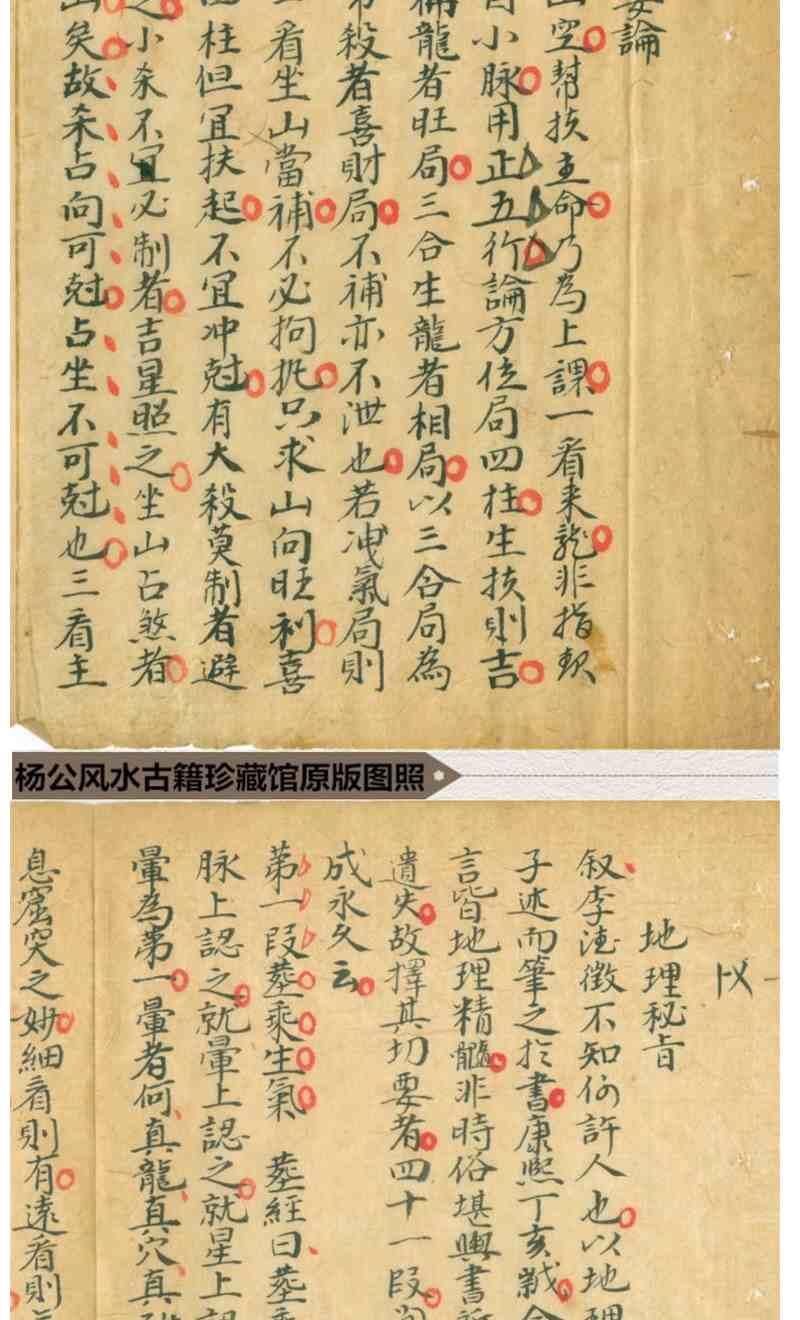 論
空幫扶主命乃為上課一看来龍非指
小脉用正五行論方位局四柱生扶則吉
龍者旺局三合生龍者相局以三合局為
殺者喜財局不補亦不泄也若洩氣局則
看坐山當補不必拘扡只求山向旺利喜
柱但宜扶起不宜冲尅有大殺莫制者避
之小杀不宜必制者吉星照之坐山占煞者
矣故杀占向可尅占坐不可尅也三看主
杨公风水古籍珍藏馆原版图照
地理秘旨
叙李徳徵不知何許人也以地理
子述而筆之於書康熙丁亥
言皆地理精髓非時俗堪輿書
遺失故擇其切要者四十一段
成永久云
苐一段塟乘生氣 塟經曰塟
脉上認之就暈上認之就星上認
暈為第一暈者何真龍真穴真
息窟突之妙細看則有遠看則